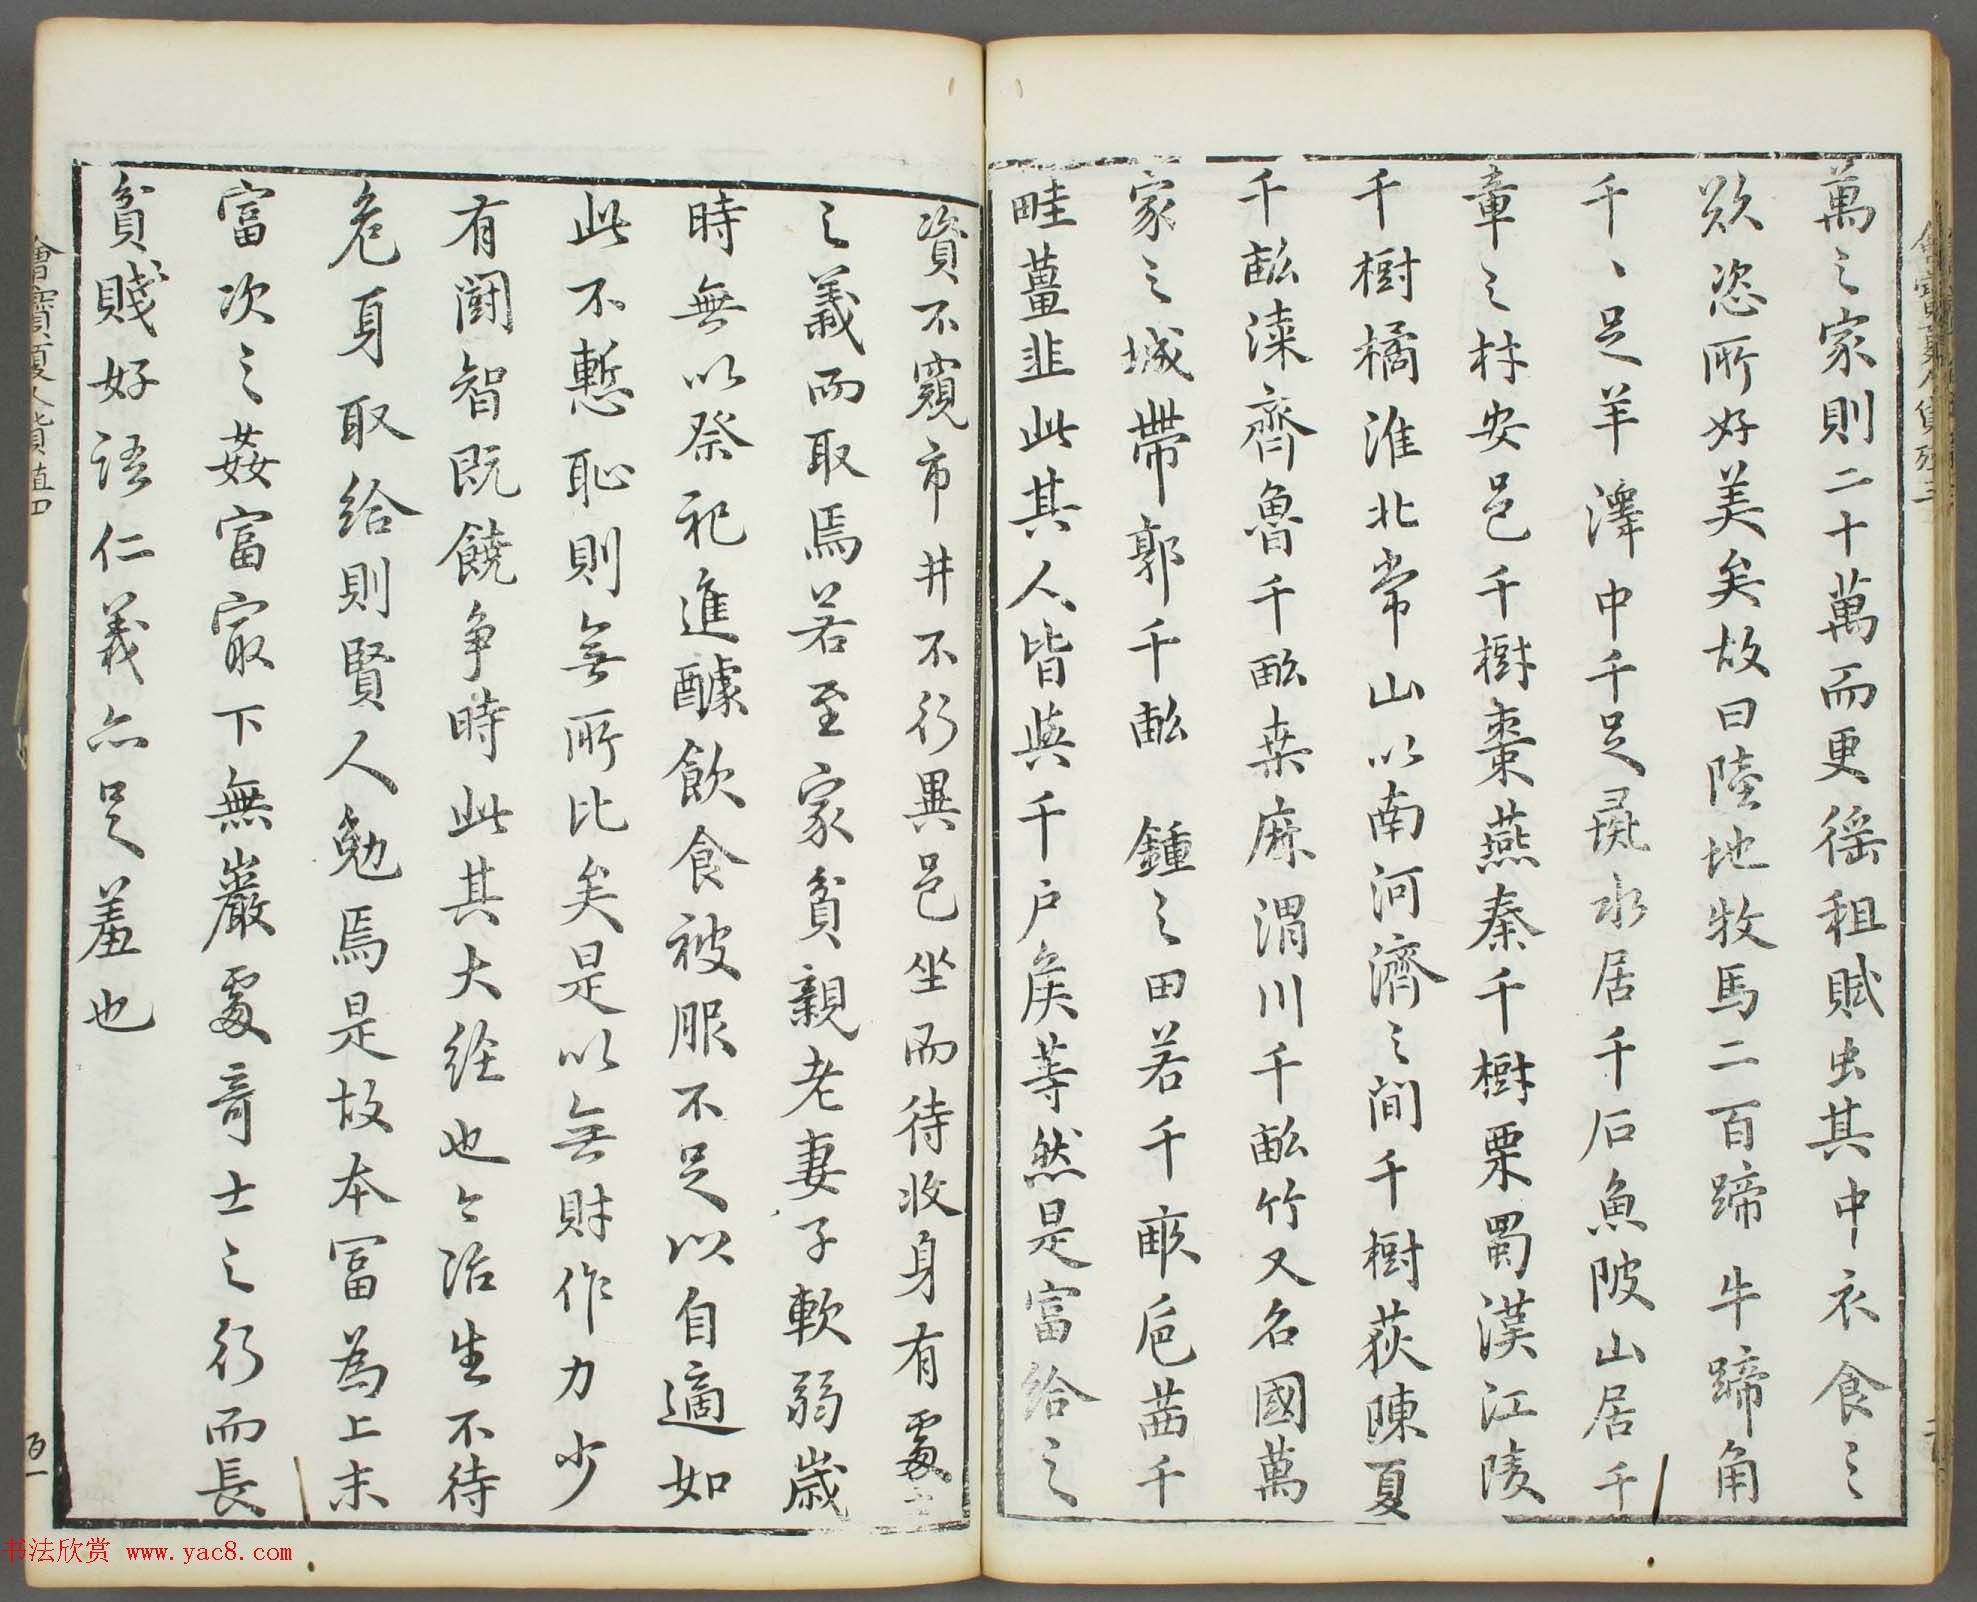 萬之家則二十萬而更徭租賦出其中衣食之
欲恣所好美矣故曰陸地牧馬二百蹄牛蹄角
千、足羊澤中千足彘水居千石魚陂山居千
章之材安邑千樹棗燕秦千樹栗蜀漢江陵
千樹橘淮北常山以南河濟之間千樹荻陳夏
千畝漆齊魯千畝桑麻渭川千畝竹又名國萬
家之城帶郭千畝鍾之田若千畝巵茜千
畦薑韭此其人皆與千户侯等然是富給之
資不窺市井不行異邑坐而待收身有處士
之義而取焉若至家貧親老妻子軟弱歲
時無以祭祀進醵飲食被服不足以自適如
此不慙恥則無所比矣是以無財作力少
有鬭智既饒争時此其大經也今治生不待
危身取給則賢人勉焉是故本富為上末
富次之姦富最下無巖處奇士之行而長
貧賤好語仁義亦足羞也
百一
书法欣赏 www.yac8.com